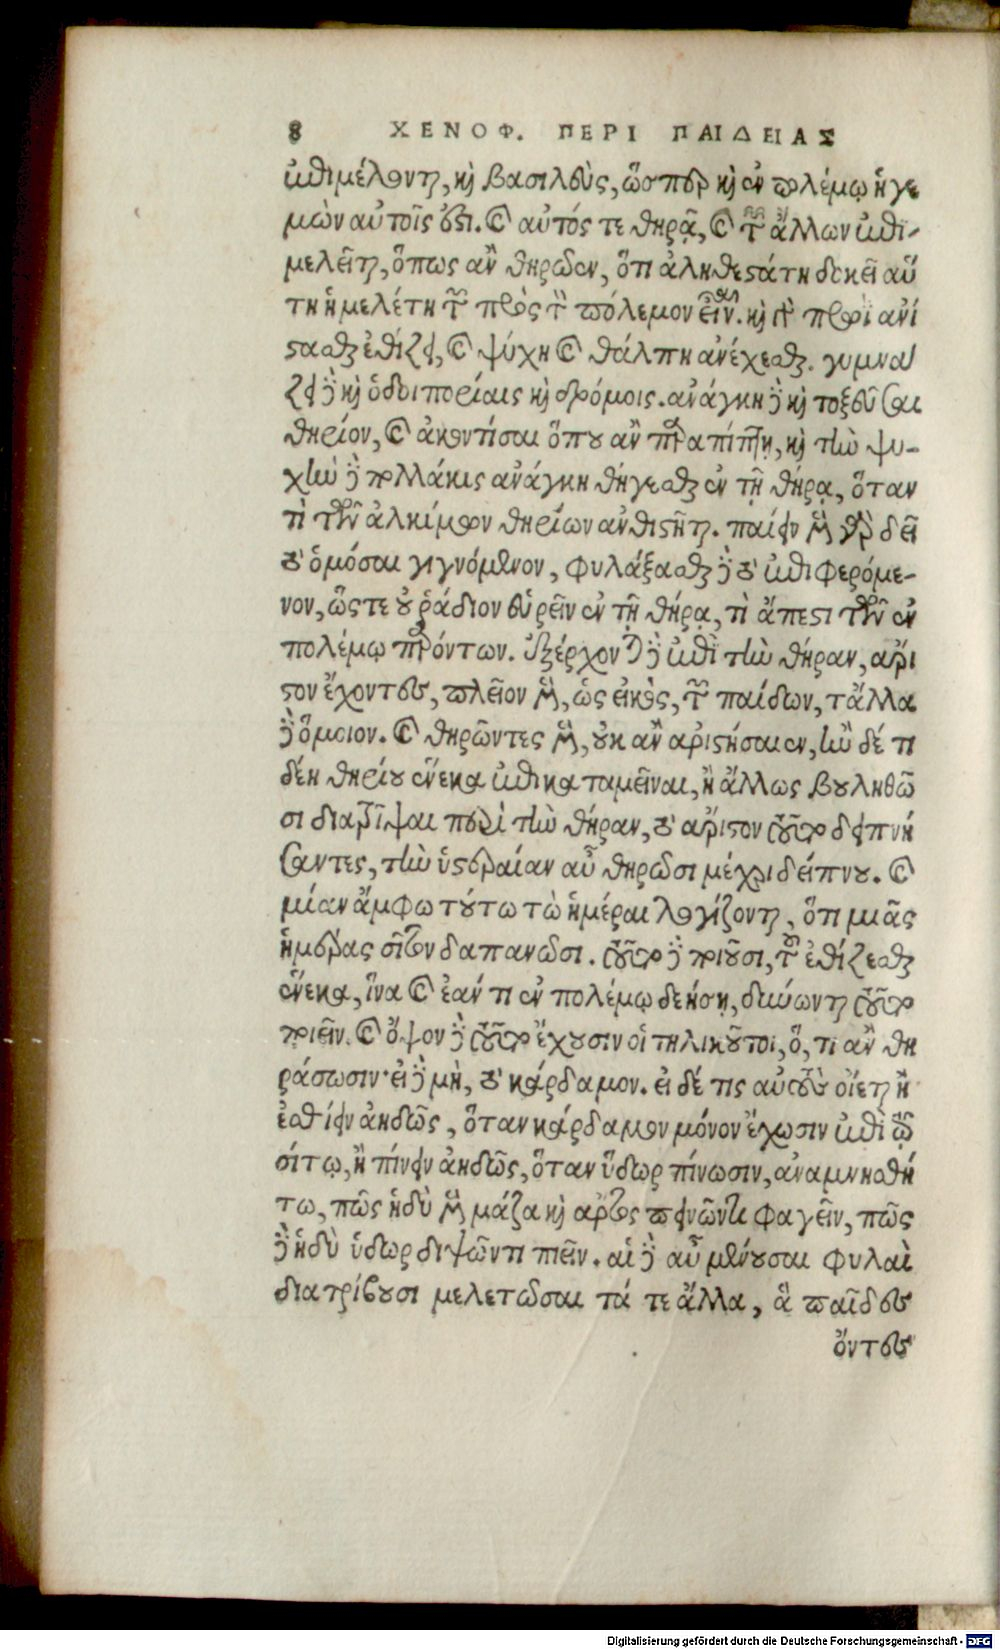 8 ΧΕΝΟΦ. ΠΕΡΙ ΠΑΙΔΕΙΑΣ
ἐπιμέλονται, καὶ βασιλεὺς, ὥσπερ καὶ ἐν πολέμῳ ἡγε
μὼν αὐτοῖς ἐστι. καὶ αὐτός τε θηρᾷ, καὶ τῶν ἄλλων ἐπι-
μελεῖται, ὅπως ἂν θηρῶεν, ὅτι ἀληθεστάτη δοκεῖ αὕ
τη ἡ μελέτη τῶν πρὸς τὸν πόλεμον εἶναι. καὶ γὰρ πρωῒ ἀνί
στασθαι ἐθίζει, καὶ ψύχη καὶ θάλπη ἀνέχεσθαι. γυμνά
ζει δὲ καὶ ὁδοιπορίαις καὶ δρόμοις. ἀνάγκη δὲ καὶ τοξεῦσαι
θηρίον, καὶ ἀκοντίσαι ὅπου ἂν παραπίπτῃ, καὶ τὴν ψυ-
χὴν δὲ πολλάκις ἀνάγκη θήγεσθαι ἐν τῇ θήρᾳ, ὅταν
τὶ τῶν ἀλκίμων θηρίων ἀνθιστῆται. παίειν μὲν γὰρ δεῖ
τὸ ὁμόσαι γιγνόμενον, φυλάξασθαι δὲ τὸ ἐπιφερόμε-
νον, ὥστε οὐ ῥάδιον εὑρεῖν ἐν τῇ θήρᾳ, τὶ ἄπεστι τῶν ἐν
πολέμῳ παρόντων. ἐξέρχονται δὲ ἐπὶ τὴν θήραν, ἄρι
στον ἔχοντες, πλεῖον μὲν, ὡς εἰκὸς, τῶν παίδων, τἄλλα
δὲ ὅμοιον. καὶ θηρῶντες μὲν, οὐκ ἂν ἀριστήσαιεν, ἢν δέ τι
δέῃ θηρίου ἕνεκα ἐπικαταμεῖναι, ἢ ἄλλως βουληθῶ
σι διατρίψαι περὶ τὴν θήραν, τὸ ἄριστον τοῦτο δειπνή
σαντες, τὴν ὑστεραίαν αὖ θηρῶσι μέχρι δείπνου. καὶ
μίαν ἄμφω τούτω τὼ ἡμέραι λογίζονται, ὅτι μιᾶς
ἡμέρας σῖτον δαπανῶσι. τοῦτο δὲ ποιοῦσι, τοῦ ἐθίζεσθαι
ἕνεκα, ἵνα καὶ ἐάν τι ἐν πολέμῳ δεήσῃ, δύωνται τοῦτο
ποιεῖν. καὶ ὄψον δὲ τοῦτο ἔχουσιν οἱ τηλικοῦτοι, ὅ, τι ἂν θη
ράσωσιν· εἰ δὲ μὴ, τὸ κάρδαμον. εἰ δέ τις αὐτοὺς οἴεται ἢ
ἐσθίειν ἀηδῶς, ὅταν κάρδαμον μόνον ἔχωσιν ἐπὶ τῷ
σίτῳ, ἢ πίνειν ἀηδῶς, ὅταν ὕδωρ πίνωσιν, ἀναμνησθή
τω, πῶς ἡδὺ μὲν μάζα καὶ ἄρτος πεινῶντι φαγεῖν, πῶς
δὲ ἡδὺ ὕδωρ διψῶντι πιεῖν. αἱ δὲ αὖ μένουσαι φυλαὶ
διατρίβουσι μελετῶσαι τά τε ἄλλα, ἃ παῖδες
ὄντες
Digitalisierung gefördert durch die Deutsche Forschungsgemeinschaft - DFG